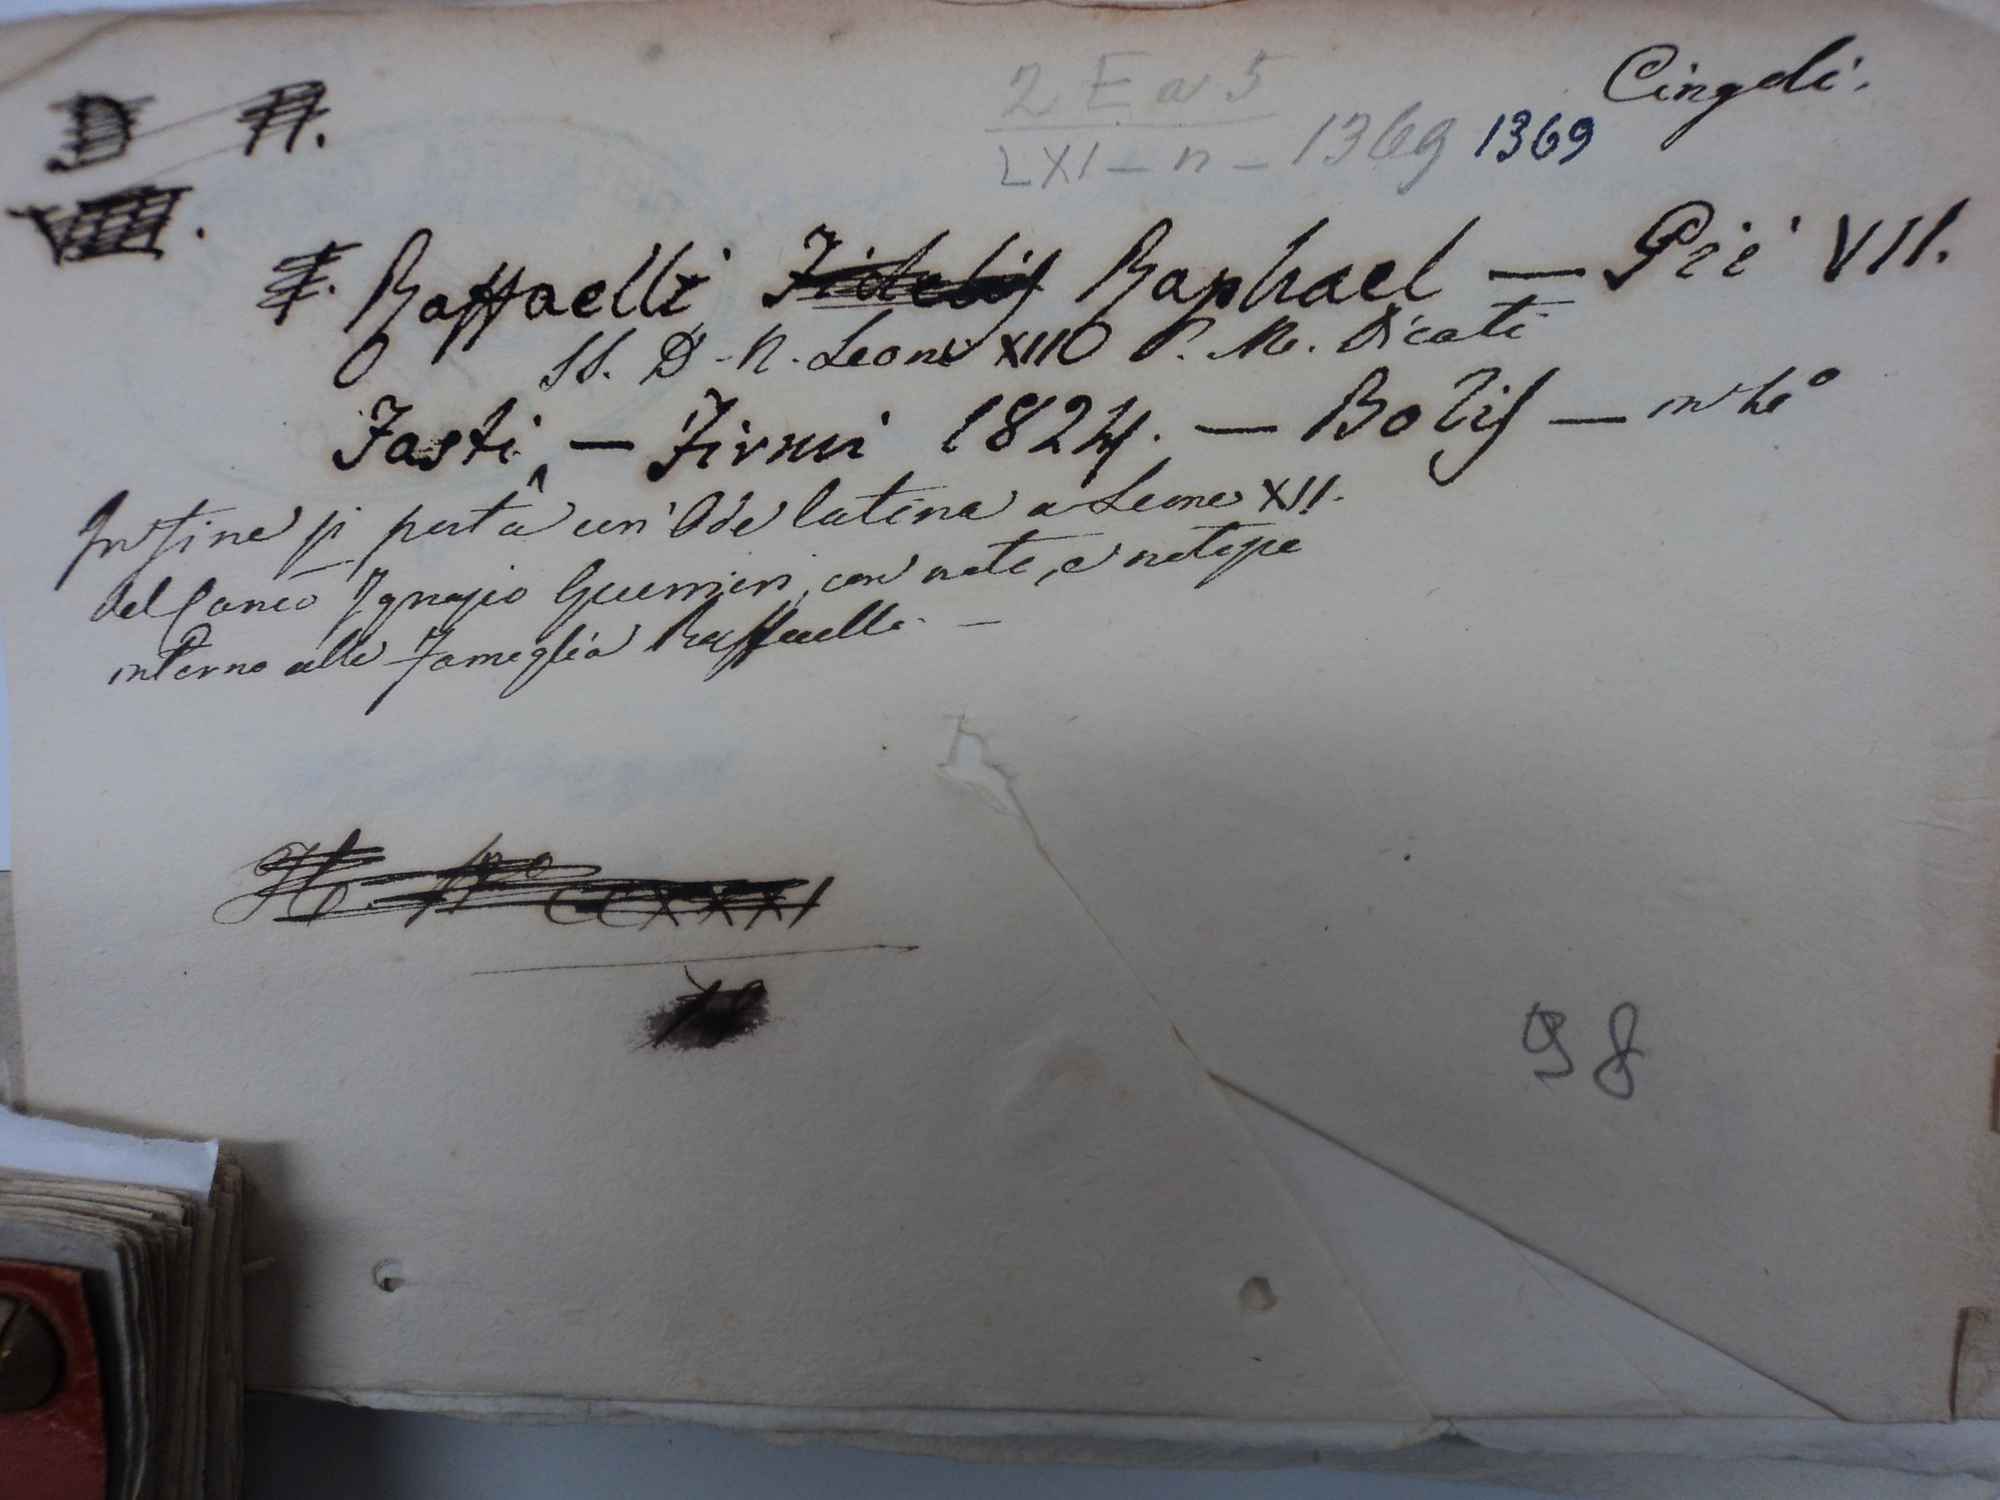 D A.
VIII.
2 E a 5
LXI - n - 1369 1369
Cingoli.
F. Raffaelli Fidelis Raphael — Pii VII.
SS. D. N. Leoni XII P. M. Dicati
Fasti — Firmi 1824. — Bolis — in
In fine si porta un'Ode latina a Leone XII.
del Canco Ignazio Guerrieri, con note, e notizie
intorno alla Famiglia Raffaelli. —
H. No CCXXXI
98